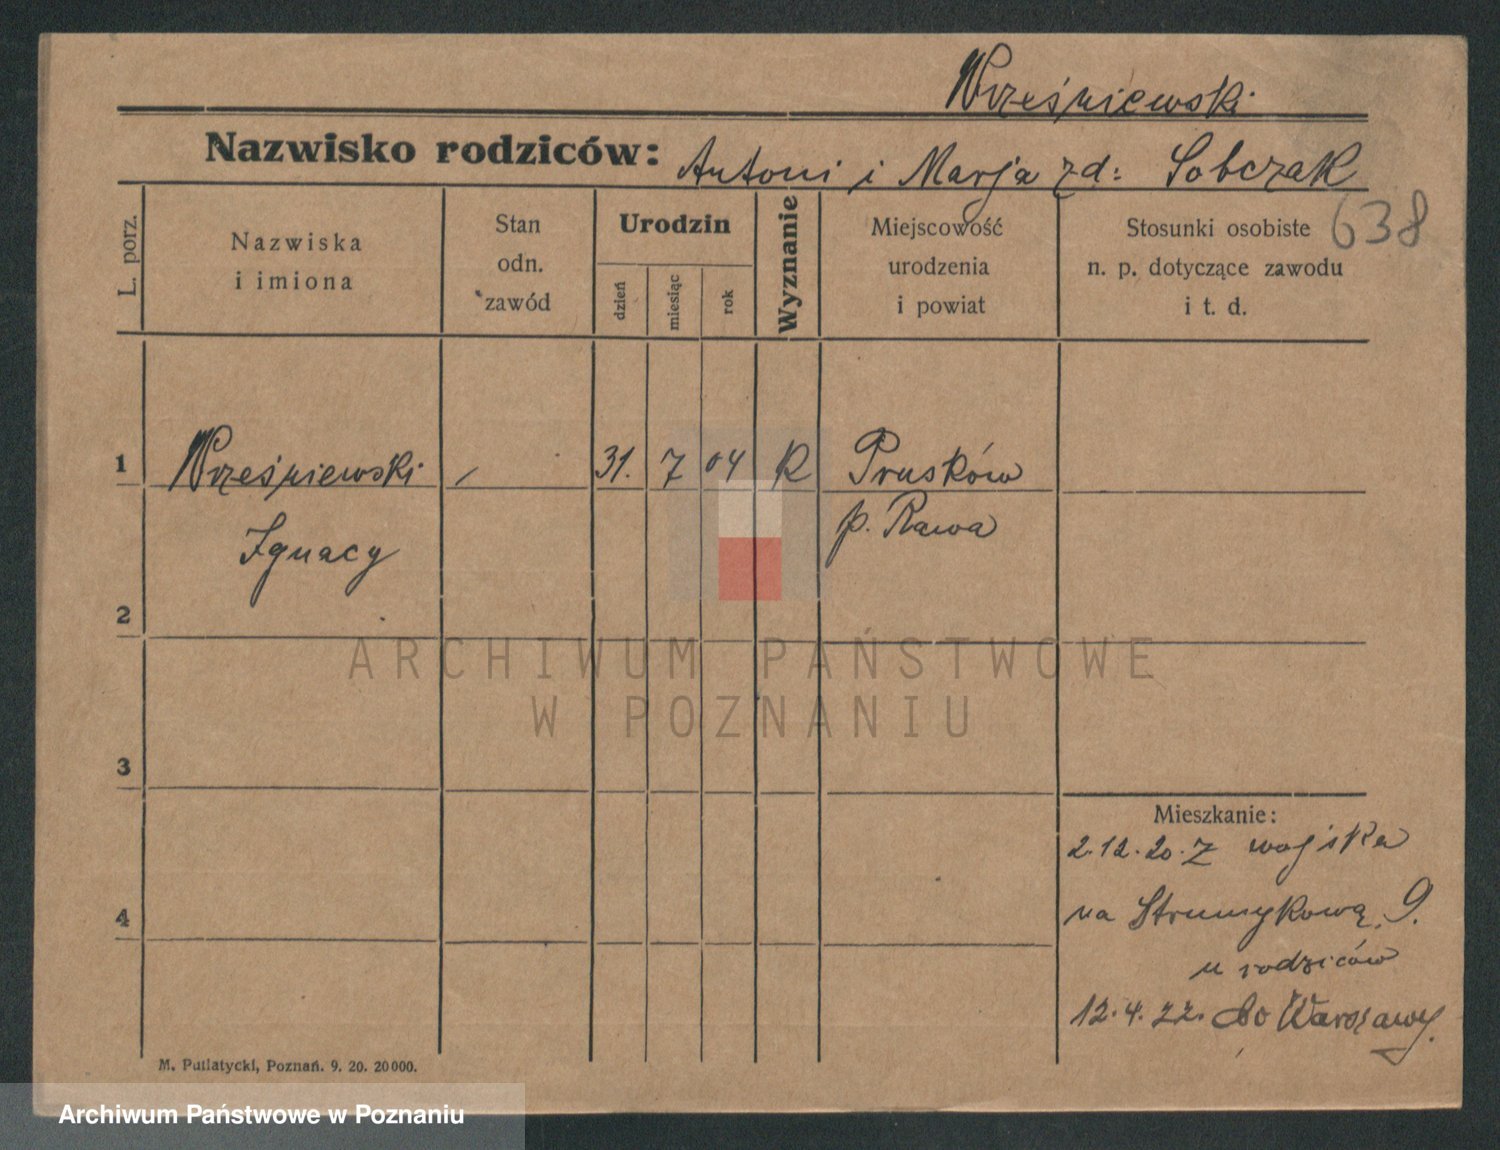 Wrześniewski
Nazwisko rodziców: Antoni i Marja zd: Sobczak
638
L. porz.
Nazwiska
i imiona
Stan
odn.
zawód
Urodzin
dzień
miesiąc
rok
Wyznanie
Miejscowość
urodzenia
i powiat
Stosunki osobiste
n. p. dotyczące zawodu
i t. d.
1 Wrześniewski / 31. 7 04 R Prusków
Ignacy p. Rawa
2
3
4
ARCHIWUM PAŃSTWOWE
W POZNANIU
Mieszkanie:
2.12.20. Z wojska
na Strumykową 9.
u rodziców
12.4.22. do Warszawy.
M. Putiatycki, Poznań. 9. 20. 20000.
Archiwum Państwowe w Poznaniu